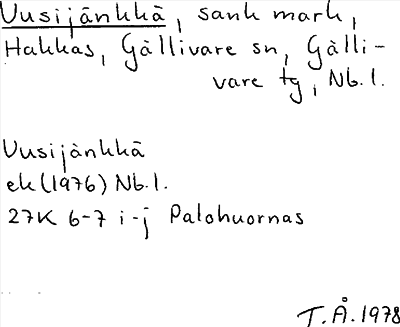 Uusijänkkä, sank mark,
Hakkas, Gällivare sn, Gälli-
vare tg, Nb.l.
Uusijänkkä
ek (1976) Nb.l.
27K 6-7 i-j Palohuornas
T.Å. 1978